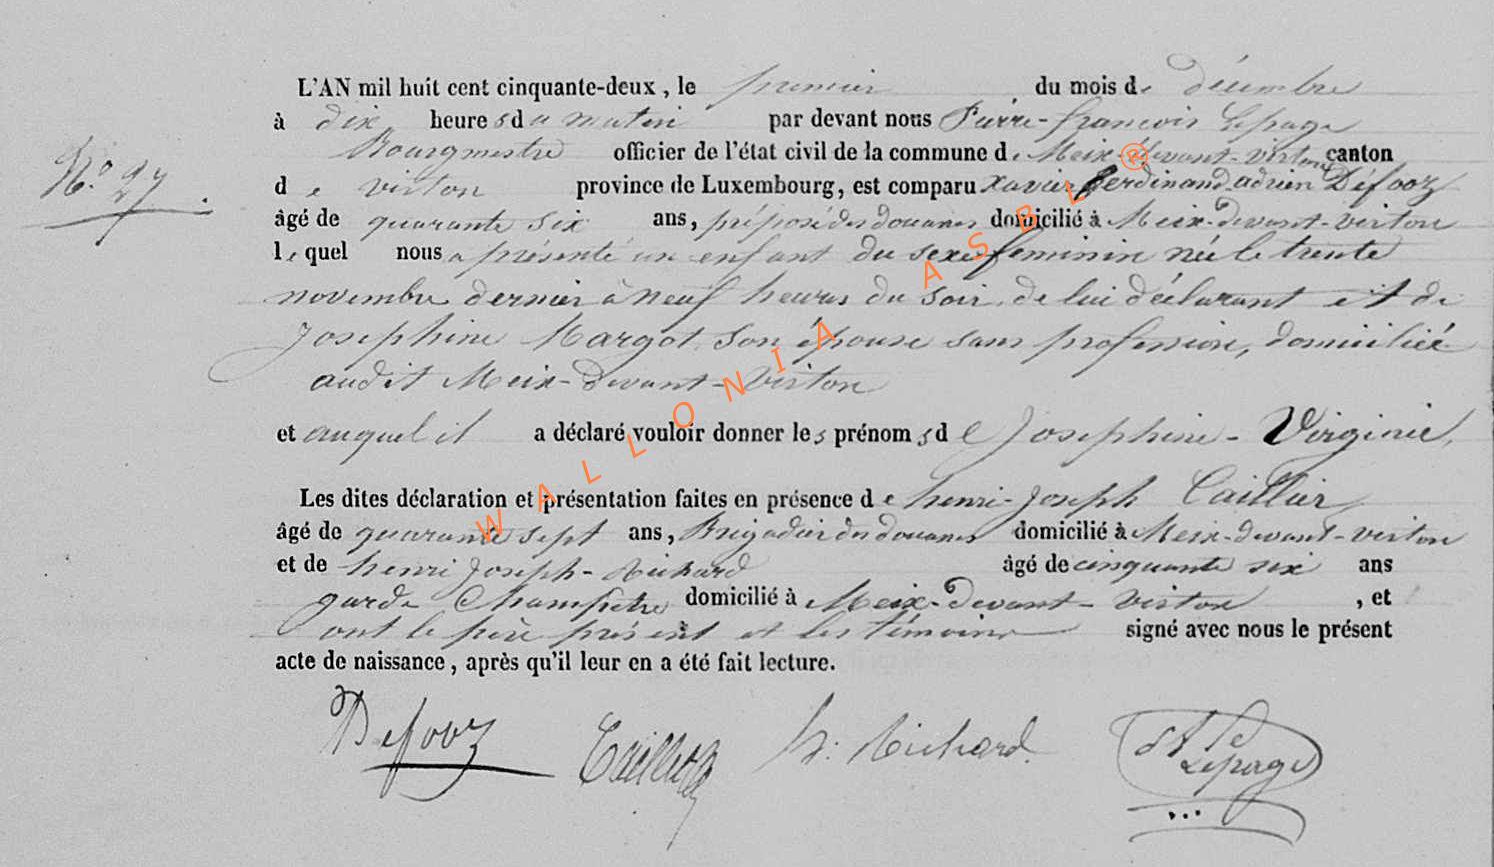 L'AN mil huit cent cinquante-deux, le premier du mois de décembre
à dix heures du matin par devant nous Pierre-françois Lepage
Bourgmestre officier de l'état civil de la commune de Meix-devant-virton canton
N.° 27.
de virton province de Luxembourg, est comparu Xavier ferdinand adrien Défooz
âgé de quarante six ans, préposé des douanes domicilié à Meix-devant-virton
lequel nous a présenté un enfant du sexe feminin née le trente
novembre dernier à neuf heures du soir, de lui déclarant et de
Josephine Margot son épouse sans profession, domiciliée
audit Meix-devant-Virton
et auquel il a déclaré vouloir donner les prénoms de Josephine-Virginie,
Les dites déclaration et présentation faites en présence de henri-Joseph Taillier,
âgé de quarante sept ans, Brigadier des douanes domicilié à Meix-devant-virton
et de henri Joseph-Richard âgé de cinquante six ans
garde Champetre domicilié à Meix-devant-virton, et
ont le père présent et les témoins signé avec nous le présent
acte de naissance, après qu'il leur en a été fait lecture.
Defooz h: Richard. Lepage
WALLONIA ASBL ®